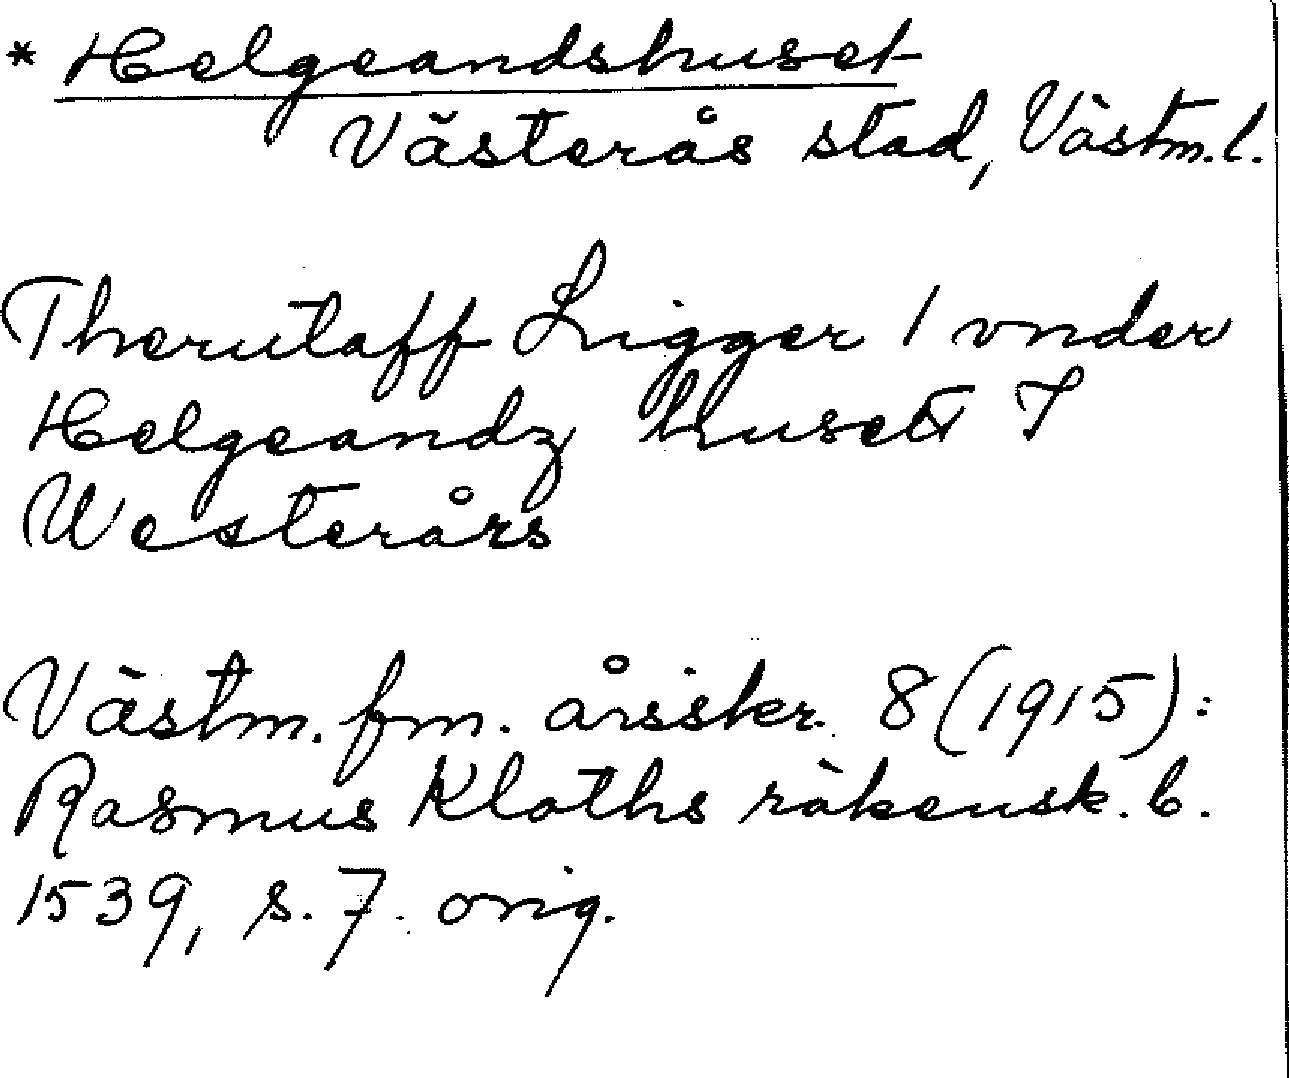 * Helgeandshuset
Västerås stad, Västm. l.
Therutaff Ligger 1 vnder
Helgeandz husett I
Westerårs
Västm. fm. årsskr. 8 (1915):
Rasmus Kloths räkensk. b.
1539, s. 7. orig.